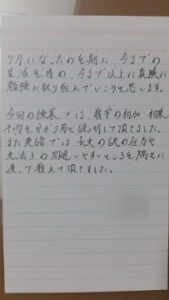 7月になったのを期に、今までの
生活を改め、今まで以上に真剣に
勉強に取り組んでいこうと思います。
今回の授業では、数学の相加・相乗
平均を分かり易く説明して頂きました。
また英語では、長文の訳の仕方や
文法上の間違いやすいところを満遍に
渡って教えて頂きました。